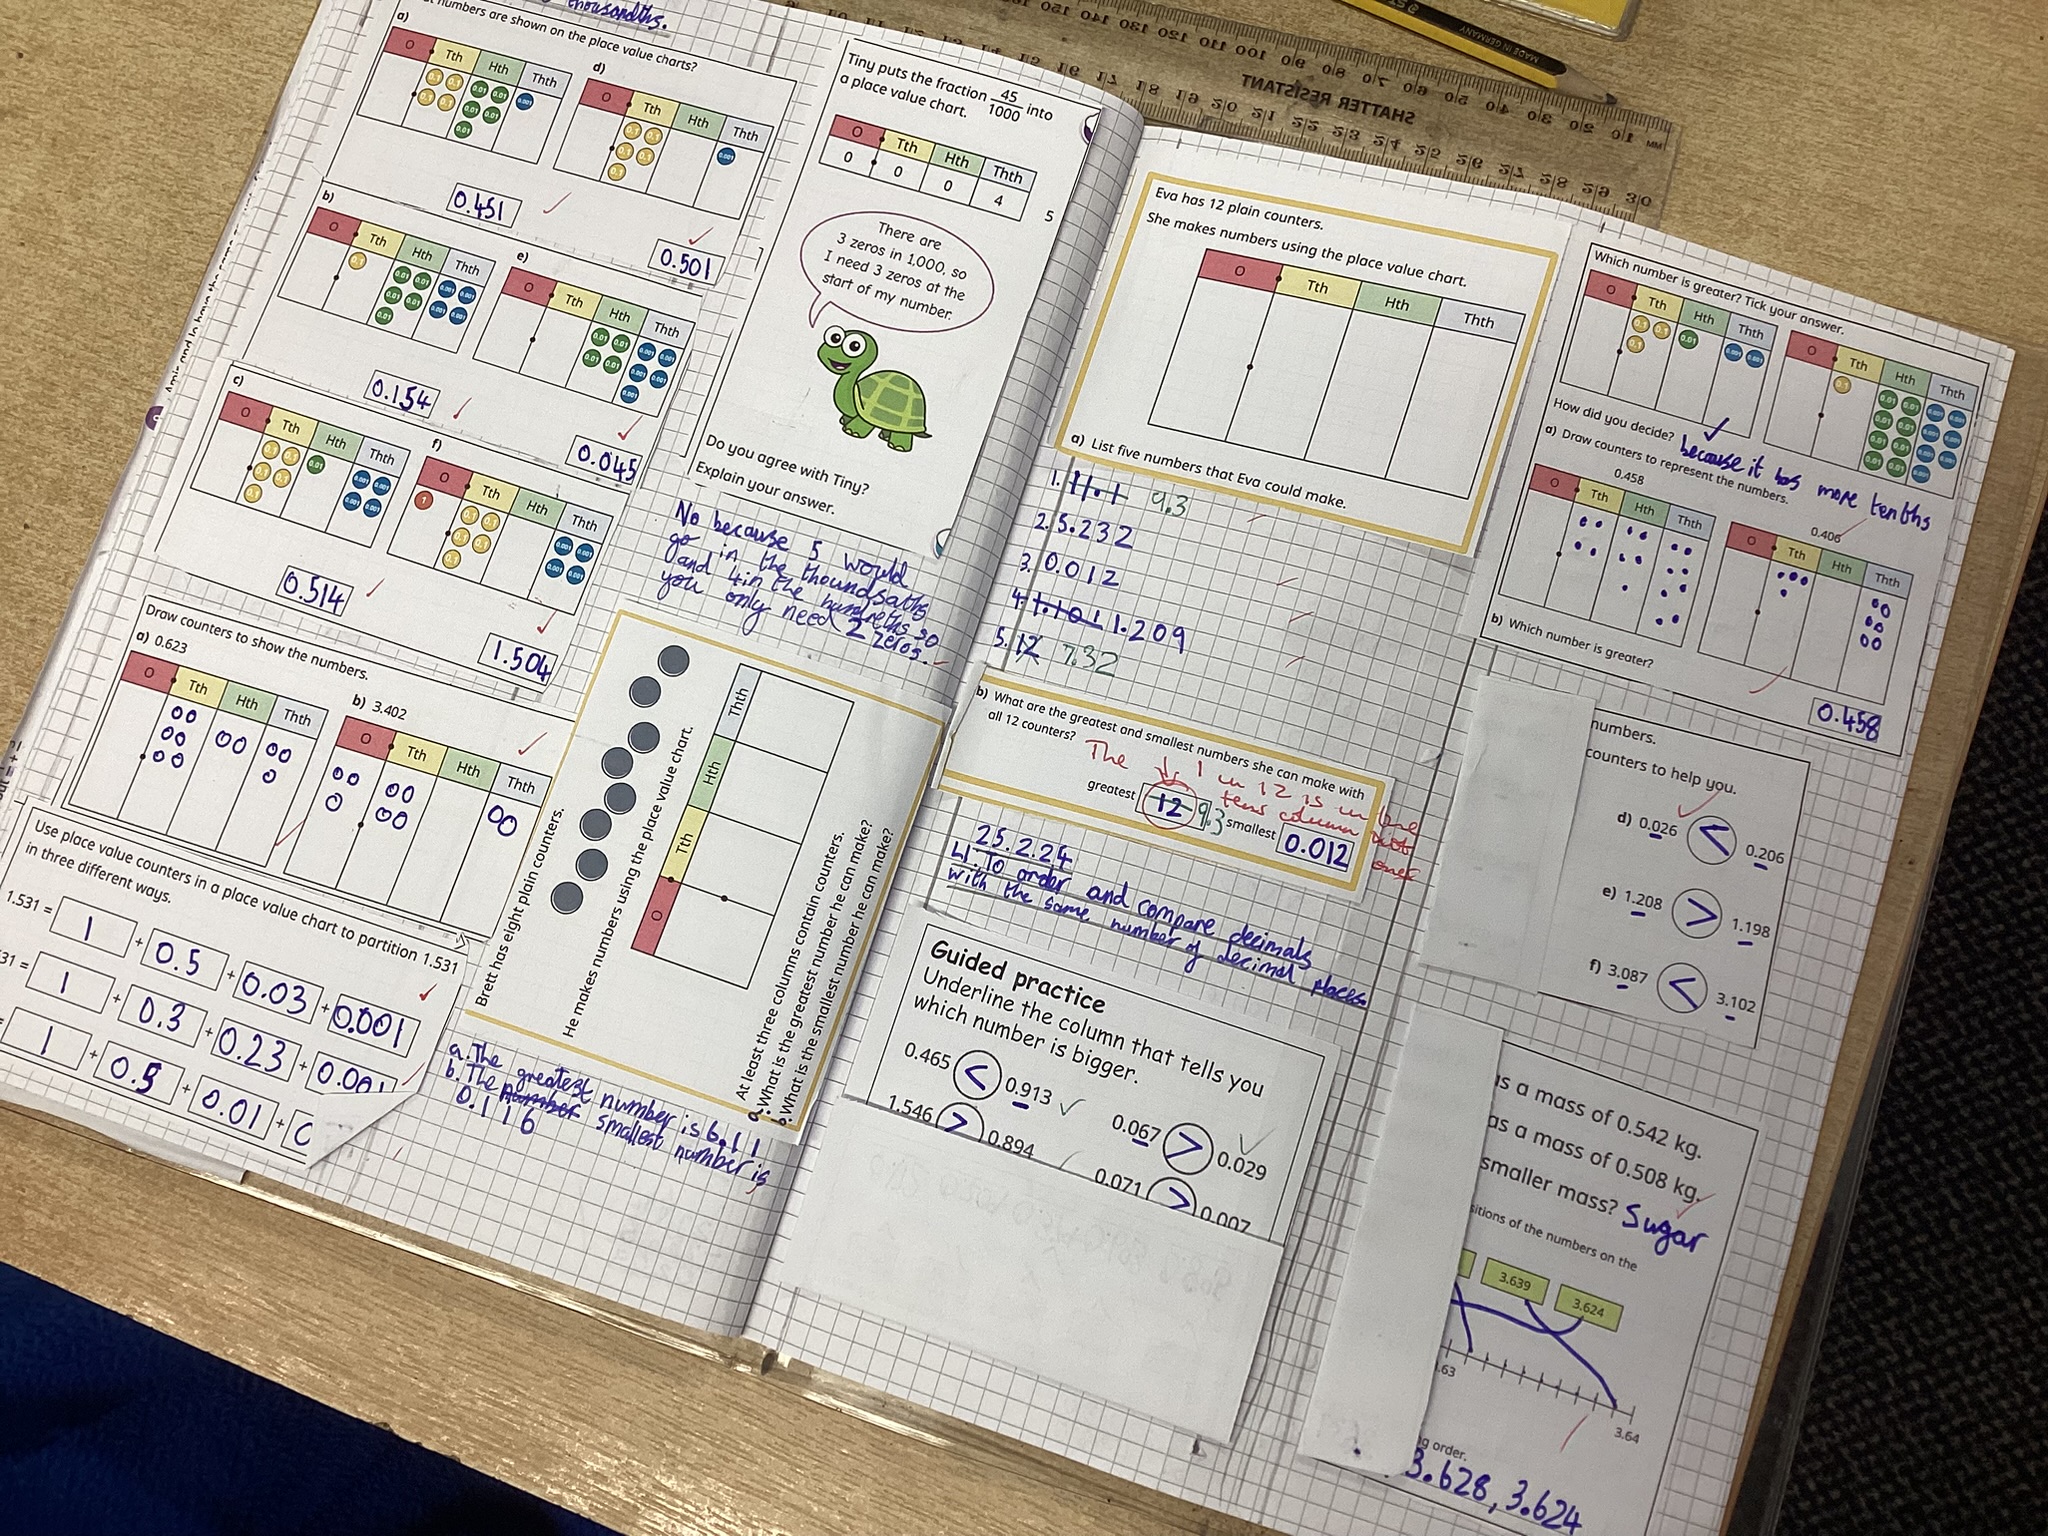 thousandths.
numbers are shown on the place value charts?
a)
O Tth Hth Thth
0.1 0.1 0.01 0.01 0.001
0.1 0.1 0.01 0.01
0.01
0.451
d)
O Tth Hth Thth
0.1 0.1 0.001
0.1 0.1
0.1
0.501
b)
O Tth Hth Thth
0.1 0.01 0.01 0.001 0.001
0.01 0.01 0.001 0.001
0.01
0.154
e)
O Tth Hth Thth
0.01 0.01 0.001 0.001
0.01 0.01 0.001 0.001
0.001
0.045
c)
O Tth Hth Thth
0.1 0.1 0.01 0.001 0.001
0.1 0.1 0.001 0.001
0.1
0.514
f)
O Tth Hth Thth
1 0.1 0.1 0.001 0.001
0.1 0.1 0.001 0.001
0.1
1.504
Draw counters to show the numbers.
a) 0.623
O Tth Hth Thth
b) 3.402
O Tth Hth Thth
Use place value counters in a place value chart to partition 1.531
in three different ways.
1.531 = 1 + 0.5 + 0.03 + 0.001
31 = 1 + 0.3 + 0.23 + 0.001
= 1 + 0.5 + 0.01 +
Tiny puts the fraction 45/1000 into
a place value chart.
O Tth Hth Thth
0 0 0 4 5
There are
3 zeros in 1,000, so
I need 3 zeros at the
start of my number.
Do you agree with Tiny?
Explain your answer.
No because 5 would
go in the thoundsaths
and 4 in the hundreths so
you only need 2
zeros.
Brett has eight plain counters.
He makes numbers using the place value chart.
O Tth Hth Thth
At least three columns contain counters.
a. What is the greatest number he can make?
b. What is the smallest number he can make?
a. The greatest number is 6.11
b. The number smallest number is
0.116
Eva has 12 plain counters.
She makes numbers using the place value chart.
O Tth Hth Thth
a) List five numbers that Eva could make.
1. 11.1 9.3
2. 5.232
3. 0.012
4. 1.101 1.209
5. 12 7.32
b) What are the greatest and smallest numbers she can make with
all 12 counters?
The 1 in 12 is in the
tens column not
ones
greatest 12 9.3 smallest 0.012
25.2.24
LI: To order and compare decimals
with the same number of decimal places.
Guided practice
Underline the column that tells you
which number is bigger.
0.465 < 0.913
0.067 > 0.029
1.546 > 0.894
0.071 > 0.007
Which number is greater? Tick your answer.
O Tth Hth Thth
0.1 0.1 0.01 0.001 0.001
0.1
O Tth Hth Thth
0.1 0.01 0.01 0.001 0.001
0.01 0.01 0.001 0.001
0.01 0.01 0.001 0.001
0.01 0.01 0.001
How did you decide? because it has more tenths
a) Draw counters to represent the numbers.
0.458
O Tth Hth Thth
0.406
O Tth Hth Thth
b) Which number is greater?
0.458
numbers.
counters to help you.
d) 0.026 < 0.206
e) 1.208 > 1.198
f) 3.087 < 3.102
as a mass of 0.542 kg.
as a mass of 0.508 kg.
smaller mass? Sugar
sitions of the numbers on the
3.639
3.624
.63
3.64
ng order.
3.628, 3.624
SHATTER RESISTANT
MADE IN GERMANY